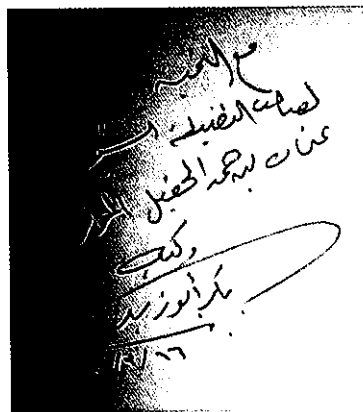 مع التحية
لصاحب الفضيلة
عثمان بن حمد الحقيل
وكتب
بكر أبو زيد